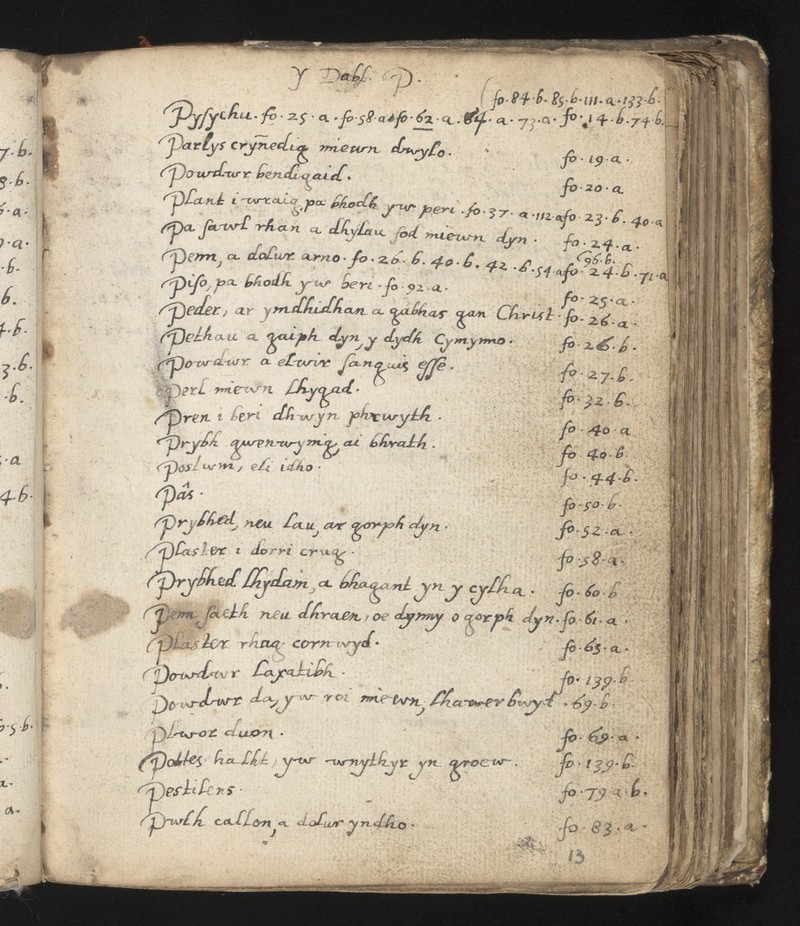 7·b·
Y Dabl. P.
8·b·
(fo·84·b·85·b·111·a·133·b·
6·a·
Pysychu·fo·25·a·fo·58·a·fo·62·a·64·a·73·a·fo·14·b·74·b·
Parlys crynedig miewn dwylo· fo·19·a·
Powdwr bendigaid· fo·20·a
Plant i wraig, pa bhodh yw peri·fo·37·a·112·a fo·23·b·40·a
Pa sawl rhan a dhylau fod miewn dyn· fo·24·a·
96·b·
Penn, a dolur arno·fo·26·b·40·b·42·b·54·a fo·24·b·71·a
Piso, pa bhodh yw beri·fo·92·a· fo·25·a·
Peder, ar ymdhidhan a gabhas gan Christ· fo·26·a·
Pethau a gaiph dyn, y dydh Cymymo· fo·26·b·
Powdwr a elwir sanguis esse· fo·27·b·
Perl miewn lhygad· fo·32·b·
Pren i beri dhwyn phrwyth· fo·40·a
Prybh gwenwymig, ai bhrath· fo·40·b·
Postwm, eli idho· fo·44·b·
Pâs· fo·50·b·
Prybhed, neu lau, ar gorph dyn· fo·52·a·
Plaster i dorri crug· fo·58·a·
Prybhed lhydain, a bhagant yn y cylha· fo·60·b
Penn saeth neu dhraen, oe dynny o gorph dyn·fo·61·a·
Plaster rhag cornwyd· fo·65·a·
Powdwr laxatibh· fo·139·b·
Powdwr da, yw roi miewn, lhawer bwyd·69·b·
Plwor duon· fo·69·a·
Potes halht, yw wnythyr yn groew· fo·139·b·
Pestilens· fo·79·a·b·
Pwlh callon, a dolur yndho· fo·83·a·
13